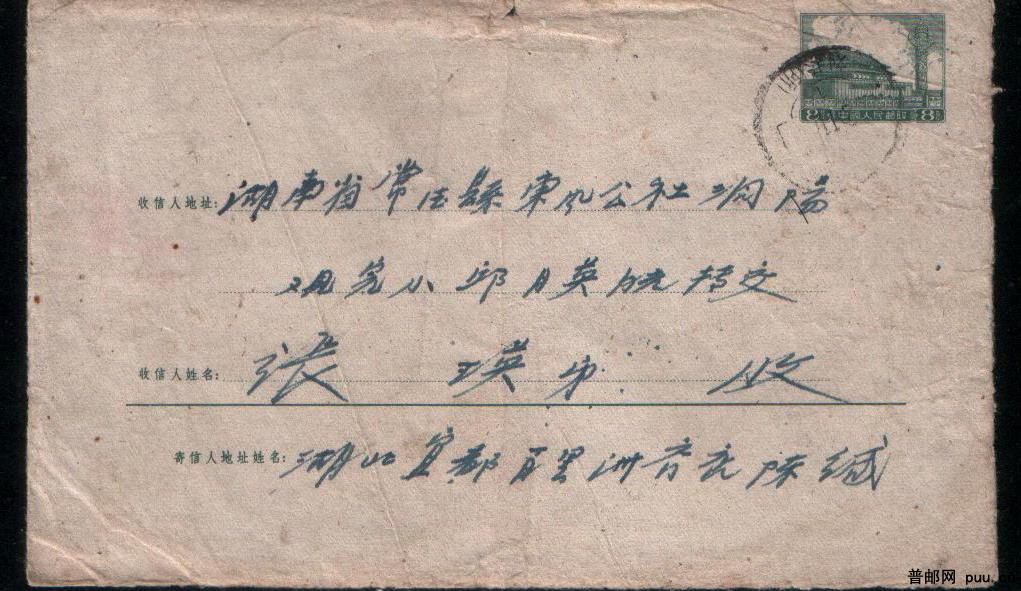 8 中國人民邮政 8
收信人地址: 湖南省常德縣東风公社洞陽
观完小 邱月英 转交
收信人姓名: 張 瑛 收
寄信人地址姓名: 湖北宜都百里洲 陈缄
普邮网 puu.cn